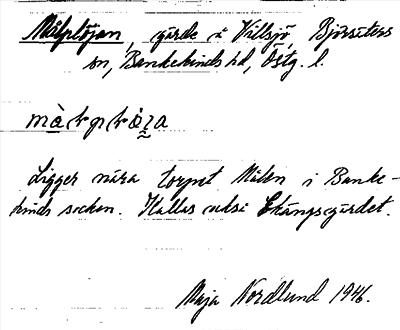 Målplöjan, gärde i Villsjö, Björsäters
sn, Bankekinds hd, Östg. l.
Ligger nära torpet Målen i Banke-
kinds socken. Kallas också Ekängsgärdet.
Maja Nordlund 1946.